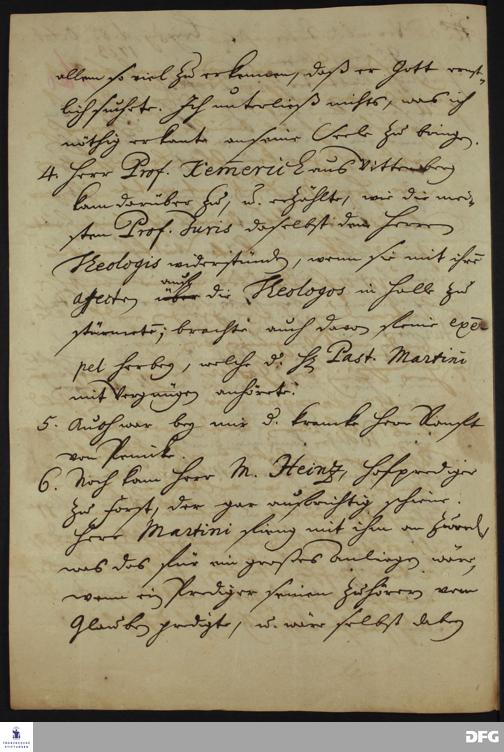 allem so viel zu erkennen, daß er Gott ernst-
lich suchte. Ich unterließ nichts, was ich
nöthig erkante an seine Seele zu bringen.
4. Herr Prof. Kemerich aus Wittenberg
kam darüber zu, u. erzählte, wie die mei-
sten Prof. Juris daselbst den Herren
Theologis widerstünden, wenn sie mit ihren
affecten auch die Theologos in Halle zu
stürmeten; brachte auch davon seine exem-
pel herbey, welche d. H. Past. Martini
mit Vergnügen anhörete.
5. Auch war bey mir d. krancke Herr
von
6. Noch kam Herr M. Heintz, Hofprediger
zu Forst, der gar aufrichtig schiene.
Herr Martini fieng mit ihm an zu reden,
was das für ein großes anliegen wäre,
wenn ein Prediger seinen Zuhörern vom
Glauben predigte, u. wäre selbst dabey
FRANCKESCHE STIFTUNGEN
DFG